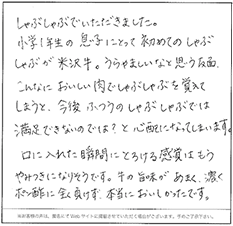 しゃぶしゃぶでいただきました。
小学1年生の息子にとって初めてのしゃぶ
しゃぶが米沢牛。うらやましいなと思う反面、
こんなにおいしい肉でしゃぶしゃぶを覚えて
しまうと、今後ふつうのしゃぶしゃぶでは
満足できないのでは？と心配になってしまいます。
口に入れた瞬間にとろける感覚はもう
やみつきになりそうです。牛の旨味があまく、濃く
ポン酢に全く負けず、本当においしかったです。
※お客様の声は、匿名にてWebサイトに掲載させていただく場合がございます。予めご了承下さい。